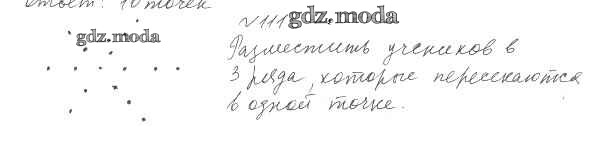 Ответ: 10 точек
№111 gdz.moda
gdz.moda
Разместить учеников в
3 ряда, которые пересекаются
в одной точке.